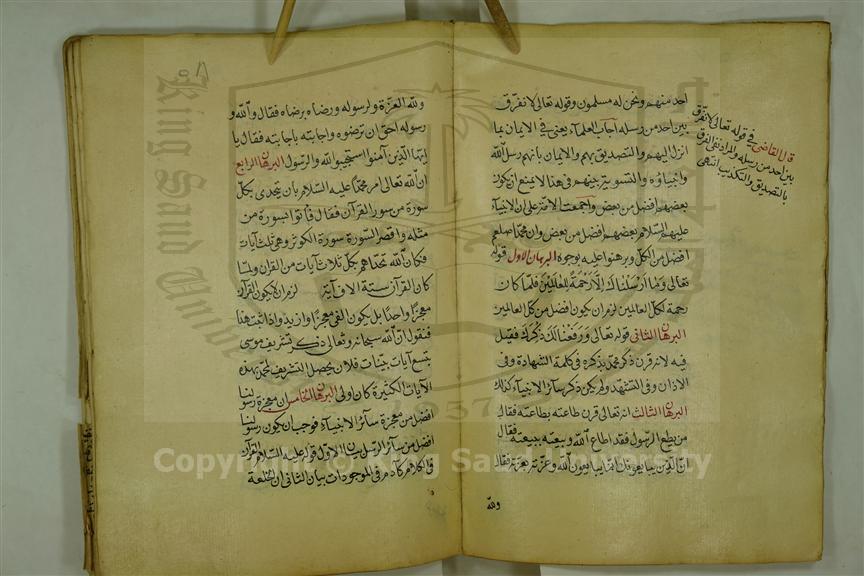 احد منهم ونحن له مسلمون وقوله تعالى لا نفرق
بين احد من رسله اجاب العلماء يعنى فى الايمان بما
انزل اليهم والتصديق بهم والايمان بانهم رسل الله
وانبياؤه والتسوية بينهم فى هذا لا يمنع ان يكون
بعضهم افضل من بعض واجمعت الامة على ان الانبياء
عليهم السلام بعضهم افضل من بعض وان محمدا صلعم
افضل من الكل وبرهنوا عليه بوجوه البرهان الاول قوله
تعالى وما ارسلناك الا رحمة للعالمين فلما كان
رحمة لكل العالمين لزم ان يكون افضل من كل العالمين
البرهان الثانى قوله تعالى ورفعنا لك ذكرك فقيل
فيه لانه قرن ذكر محمد بذكره فى كلمة الشهادة وفى
الاذان وفى التشهد ولم يكن ذكر سائر الانبياء كذلك
البرهان الثالث انه تعالى قرن طاعته بطاعته فقال
من يطع الرسول فقد اطاع الله وبيعته ببيعته فقال
ان الذين يبايعونك انما يبايعون الله وعزته بعزته فقال
ولله
قال القاضى فى قوله تعالى لا نفرق
بين احد من رسله والمراد نفى الفرق
بالتصديق والتكذيب انتهى
ولله العزة ولرسوله ورضاه برضاه فقال والله و
رسوله احق ان ترضوه واجابته باجابته فقال يا
ايها الذين آمنوا استجيبوا لله والرسول البرهان الرابع
ان الله تعالى امر محمدا عليه السلام بان يتحدى بكل
سورة من سور القرآن فقال فأتوا بسورة من
مثله واقصر السورة سورة الكوثر وهى ثلث آيات
فكان الله تحداهم بكل ثلاث آيات من القرآن ولما
كان القرآن ستة الاف آية لزم ان لا يكون القرآن
معجزا واحدا بل يكون الفى معجزا وازيد واذا ثبت هذا
فنقول ان الله سبحانه وتعالى ذكر تشريف موسى
بتسع آيات بينات فلان يحصل التشريف لمحمد بهذه
الآيات الكثيرة كان اولى البرهان الخامس ان معجزة رسولنا
افضل من معجزة سائر الانبياء فوجب ان يكون رسولنا
افضل من سائر الرسل بيان الاول قوله عليه السلام القرآن
فى الكلام كآدم فى الموجودات بيان الثانى ان الخلعة
King Saud University
1957
Copyright © King Saud University